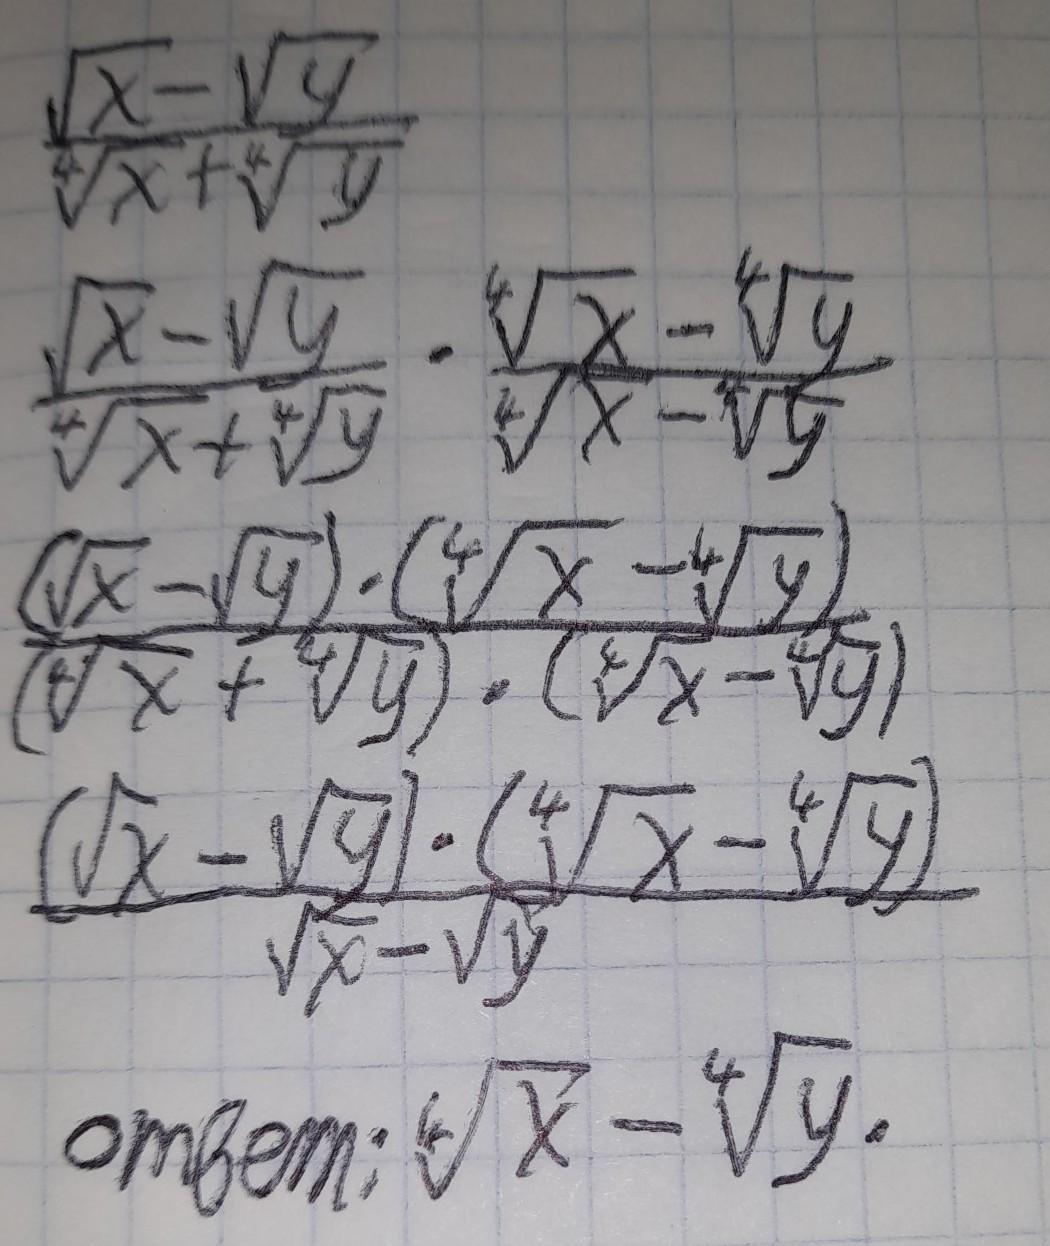 \frac{\sqrt{x} - \sqrt{y}}{\sqrt[4]{x} + \sqrt[4]{y}}
\frac{\sqrt{x} - \sqrt{y}}{\sqrt[4]{x} + \sqrt[4]{y}} \cdot \frac{\sqrt[4]{x} - \sqrt[4]{y}}{\sqrt[4]{x} - \sqrt[4]{y}}
\frac{(\sqrt{x} - \sqrt{y}) \cdot (\sqrt[4]{x} - \sqrt[4]{y})}{(\sqrt[4]{x} + \sqrt[4]{y}) \cdot (\sqrt[4]{x} - \sqrt[4]{y})}
\frac{(\sqrt{x} - \sqrt{y}) \cdot (\sqrt[4]{x} - \sqrt[4]{y})}{\sqrt{x} - \sqrt{y}}
ответ: \sqrt[4]{x} - \sqrt[4]{y}.